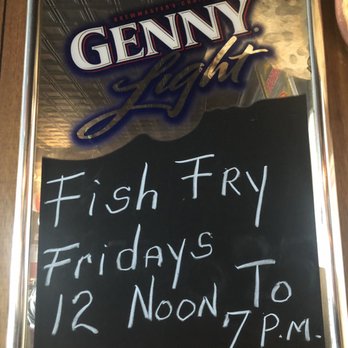 GENNY
Light
Fish Fry
Fridays
12 Noon To
7 P.M.